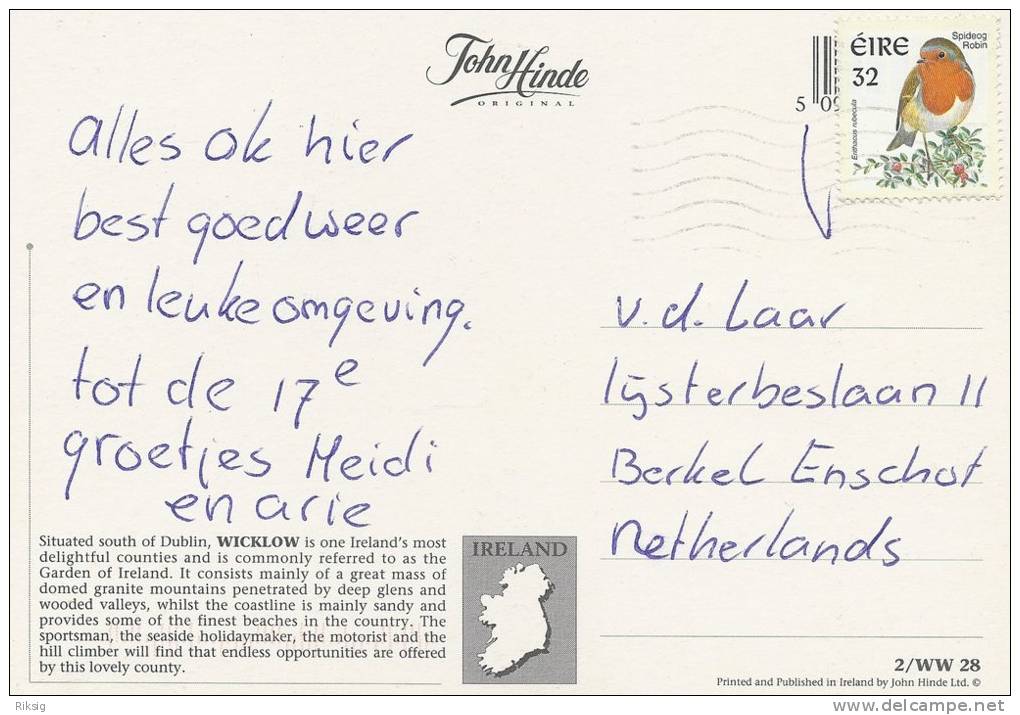 John Hinde
ORIGINAL
ÉIRE
32
Spideog
Robin
Erithacus rubecula
5 09
alles ok hier
best goed weer
en leuke omgeving.
tot de 17e
groetjes Heidi
en arie
v.d. Laar
lijsterbeslaan 11
Berkel Enschot
Netherlands
Situated south of Dublin, WICKLOW is one Ireland's most
delightful counties and is commonly referred to as the
Garden of Ireland. It consists mainly of a great mass of
domed granite mountains penetrated by deep glens and
wooded valleys, whilst the coastline is mainly sandy and
provides some of the finest beaches in the country. The
sportsman, the seaside holidaymaker, the motorist and the
hill climber will find that endless opportunities are offered
by this lovely county.
IRELAND
2/WW 28
Printed and Published in Ireland by John Hinde Ltd. ©
Riksig
delcampe.net